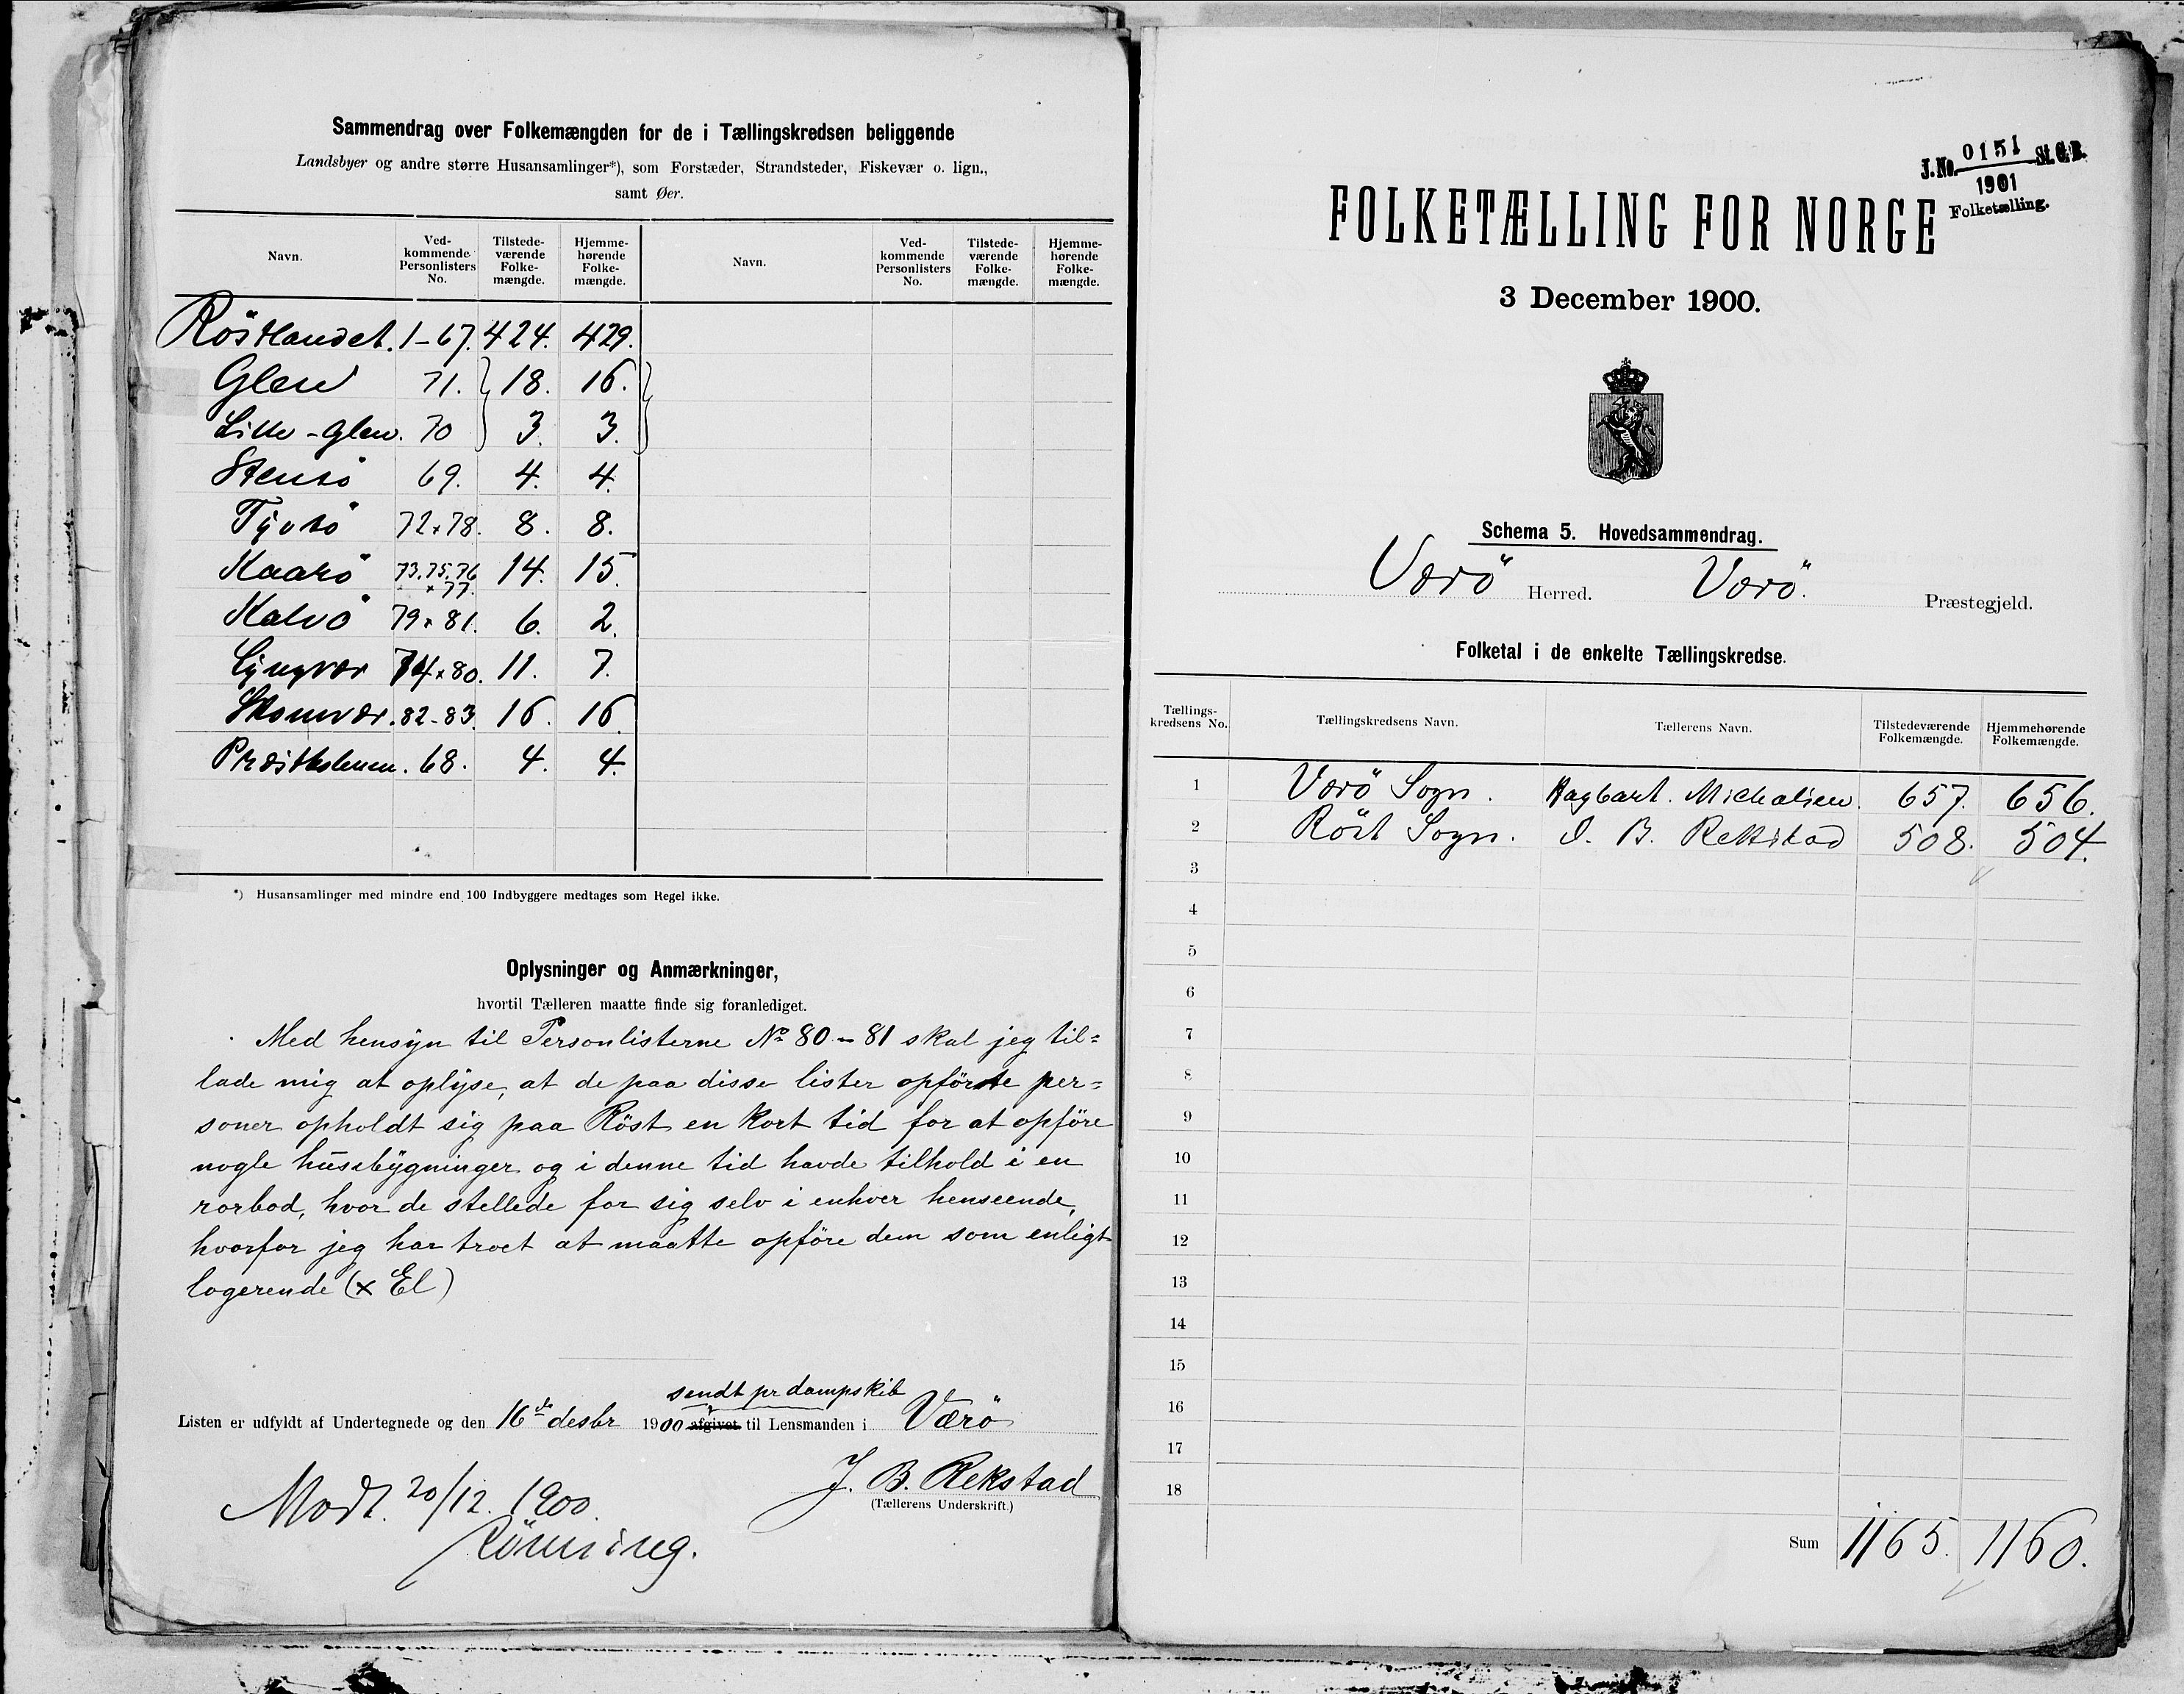 Sammendrag over Folkemængden for de i Tællingskredsen beliggende
Landsbyer og andre større Husansamlinger*), som Forstæder, Strandsteder, Fiskevær o. lign.,
samt Øer.
Navn. Ved-kommende Personlisters No. Tilstede-værende Folke-mængde. Hjemme-hørende Folke-mængde. Navn. Ved-kommende Personlisters No. Tilstede-værende Folke-mængde. Hjemme-hørende Folke-mængde.
Röstlandet. 1-67. 424. 429.
Glea 71. 18. 16.
Lille-Glea. 70 3. 3.
Stensö 69. 4. 4.
Tyvsö 72 x 78. 8. 8.
Kaarö 73. 75. 76 x 77. 14. 15.
Kalvö 79 x 81. 6. 2.
Lyngvær 74 x 80. 11. 7.
Skomvær. 82-83. 16. 16
68. 4. 4.
*) Husansamlinger med mindre end 100 Indbyggere medtages som Regel ikke.
Oplysninger og Anmærkninger,
hvortil Tælleren maatte finde sig foranlediget.
Med hensyn til Personlisterne No 80-81 skal jeg til=
lade mig at oplyse, at de paa disse lister opförte per=
soner opholdt sig paa Röst en kort tid for at opföre
nogle husebygninger og i denne tid havde tilhold i en
rorbod, hvor de stellede for sig selv i enhver henseende,
hvorfor jeg har troet at maatte opföre dem som enligt
logerende (x El)
sendt pr dampskib
Listen er udfyldt af Undertegnede og den 16de desbr 1900 afgivet til Lensmanden i Værö
J. B. Rekstad
(Tællerens Underskrift)
Modt. 20/12. 1900.
Rönning.
J. No. 0151 St. C. B.
1901
Folketælling.
FOLKETÆLLING FOR NORGE
3 December 1900.
Schema 5. Hovedsammendrag.
Værö Herred. Værö. Præstegjeld.
Folketal i de enkelte Tællingskredse.
Tællings-kredsens No. Tællingskredsens Navn. Tællerens Navn. Tilstedeværende Folkemængde. Hjemmehørende Folkemængde.
1 Værö Sogn. Hagbart. Michalsen. 657. 656.
2 Röst Sogn. J. B. Rekstad 508. 504.
3
4
5
6
7
8
9
10
11
12
13
14
15
16
17
18
Sum 1165. 1160.